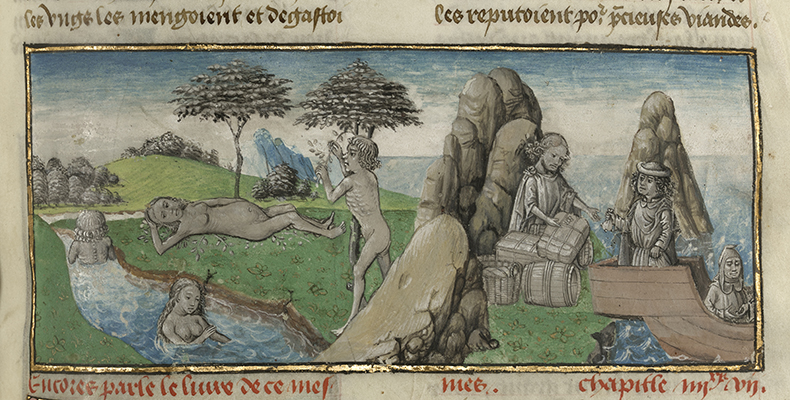 les vngs les mengoient et degastoi
les reputoient po⁹ p̃cieuses viandes.
Encores parle le liure de ce mes
mes. chapitle iiii^xx vii.